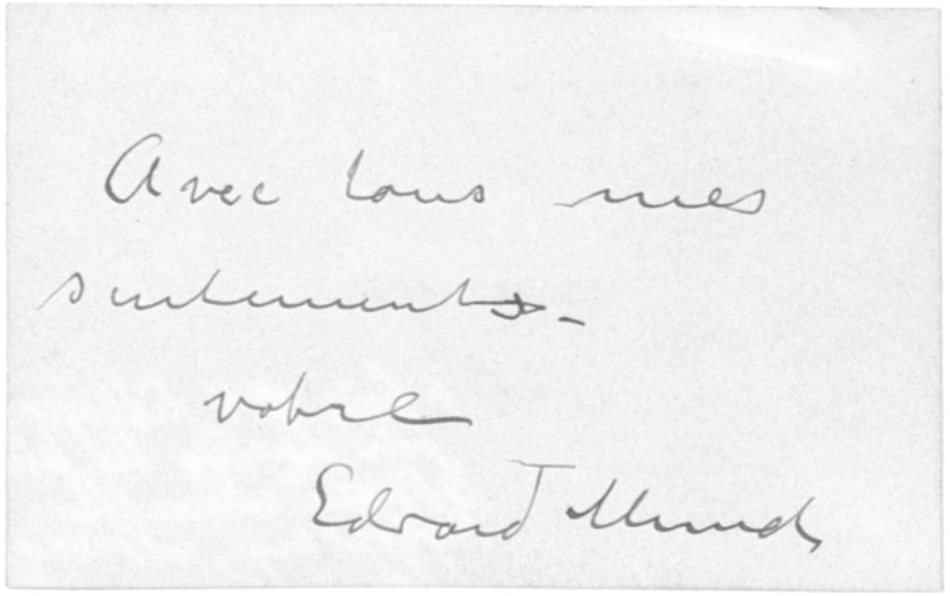 Avec tous mes
sentiments –
votre
Edvard Munch